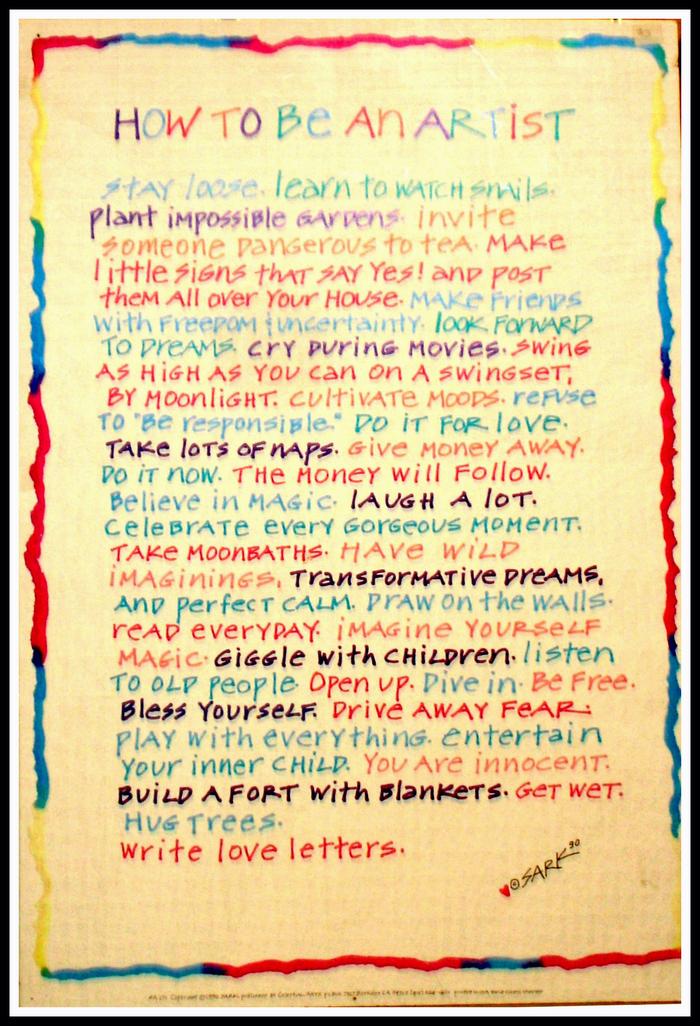 HOW TO Be An ARTiST
STAY loose. learn to WATCH SnAils.
plant impossible GARDens. invite
someone DAnGerous to teA. MAKe
little SiGns tHAT SAY Yes! anD post
tHeM All over Your House. MAKe FrienDs
With FreeDoM & uncertAinty. look ForwARD
TO DreAMS. Cry During Movies. Swing
AS HiGH AS YOU Can On A SwinGset,
BY MOONliGHT. CultivAte MOODS. reFuse
TO "Be responsible." DO iT FOR love.
TAKe lOTS OF nAps. Give Money AWAY.
Do iT now. THe Money Will Follow.
Believe in MAGic. lAUGH A lOT.
CeleBrATe every GorGeous MoMenT.
TAKe MOONBATHS. HAVe WilD
iMAGininGs, TrAnsForMATive DreAMS,
AnD perfecT CALM. DrAW On the WAlls.
reAD everyDAY. iMAGine YourselF
MAGic. GiGGle with CHilDren. listen
TO OLD people. Open up. Dive in. Be Free.
Bless YourselF. Drive AWAY FeAr.
plAY with everytHinG. entertain
Your inner CHilD. You Are innocent.
BuilD A FORT with BlAnkets. Get Wet.
HuG Trees.
Write love letters.
SARK 90